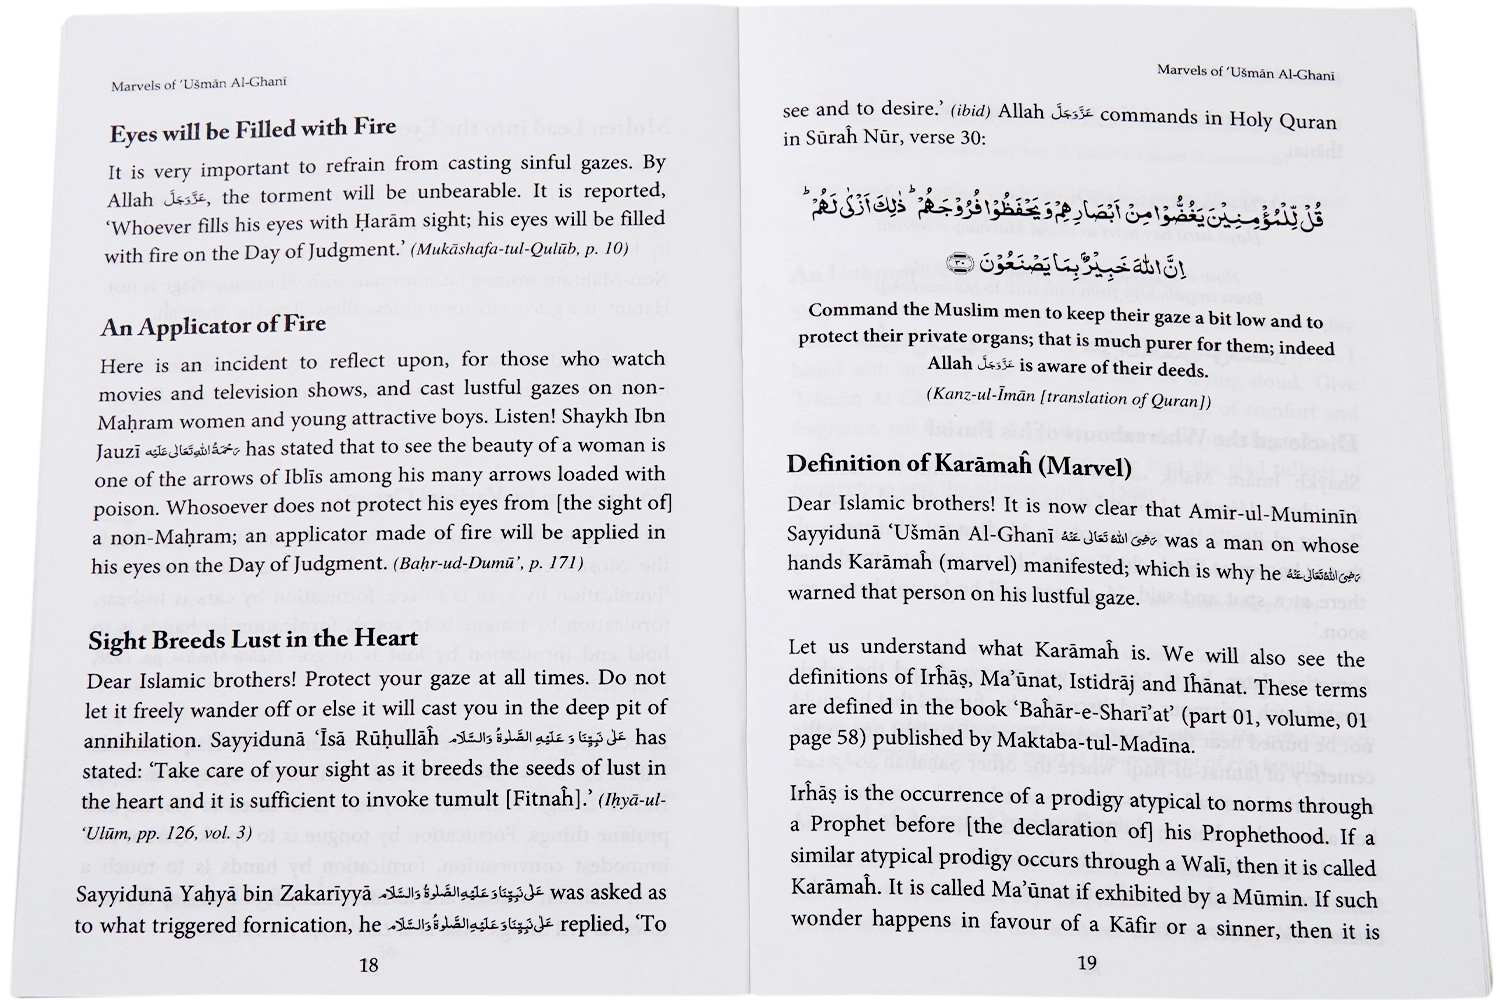 Marvels of ‘Ušmān Al-Ghanī
Eyes will be Filled with Fire
It is very important to refrain from casting sinful gazes. By
Allah عَزَّوَجَلَّ, the torment will be unbearable. It is reported,
‘Whoever fills his eyes with Ḥarām sight; his eyes will be filled
with fire on the Day of Judgment.’ (Mukāshafa-tul-Qulūb, p. 10)
An Applicator of Fire
Here is an incident to reflect upon, for those who watch
movies and television shows, and cast lustful gazes on non-
Maḥram women and young attractive boys. Listen! Shaykh Ibn
Jauzī رَحْمَةُ اللهِ تَعَالٰی عَلَيْه has stated that to see the beauty of a woman is
one of the arrows of Iblīs among his many arrows loaded with
poison. Whosoever does not protect his eyes from [the sight of]
a non-Maḥram; an applicator made of fire will be applied in
his eyes on the Day of Judgment. (Baḥr-ud-Dumū’, p. 171)
Sight Breeds Lust in the Heart
Dear Islamic brothers! Protect your gaze at all times. Do not
let it freely wander off or else it will cast you in the deep pit of
annihilation. Sayyidunā ‘Īsā Rūḥullaĥ عَلٰی نَبِيِّنَا وَ عَلَيْهِ الصَّلٰوةُ وَالسَّلَام has
stated: ‘Take care of your sight as it breeds the seeds of lust in
the heart and it is sufficient to invoke tumult [Fitnaĥ].’ (Iḥyā-ul-
‘Ulūm, pp. 126, vol. 3)
Sayyidunā Yaḥyā bin Zakarīyyā عَلٰی نَبِيِّنَا وَ عَلَيْهِ الصَّلٰوةُ وَالسَّلَام was asked as
to what triggered fornication, he عَلٰی نَبِيِّنَا وَ عَلَيْهِ الصَّلٰوةُ وَالسَّلَام replied, ‘To
18
Marvels of ‘Ušmān Al-Ghanī
see and to desire.’ (ibid) Allah عَزَّوَجَلَّ commands in Holy Quran
in Sūraĥ Nūr, verse 30:
قُلْ لِّلْمُؤْمِنِيْنَ يَغُضُّوْا مِنْ اَبْصَارِهِمْ وَ يَحْفَظُوْا فُرُوْجَهُمْ ؕ ذٰلِكَ اَزْكٰی لَهُمْ ؕ
اِنَّ اللهَ خَبِيْرٌۢ بِمَا يَصْنَعُوْنَ ﴿۳۰﴾
Command the Muslim men to keep their gaze a bit low and to
protect their private organs; that is much purer for them; indeed
Allah عَزَّوَجَلَّ is aware of their deeds.
(Kanz-ul-Īmān [translation of Quran])
Definition of Karāmaĥ (Marvel)
Dear Islamic brothers! It is now clear that Amir-ul-Muminīn
Sayyidunā ‘Ušmān Al-Ghanī رَضِیَ اللهُ تَعَالٰی عَنْهُ was a man on whose
hands Karāmaĥ (marvel) manifested; which is why he رَضِیَ اللهُ تَعَالٰی عَنْهُ
warned that person on his lustful gaze.
Let us understand what Karāmaĥ is. We will also see the
definitions of Irĥāṣ, Ma’ūnat, Istidrāj and Iĥānat. These terms
are defined in the book ‘Baĥār-e-Sharī’at’ (part 01, volume, 01
page 58) published by Maktaba-tul-Madīna.
Irĥāṣ is the occurrence of a prodigy atypical to norms through
a Prophet before [the declaration of] his Prophethood. If a
similar atypical prodigy occurs through a Walī, then it is called
Karāmaĥ. It is called Ma’ūnat if exhibited by a Mūmin. If such
wonder happens in favour of a Kāfir or a sinner, then it is
19